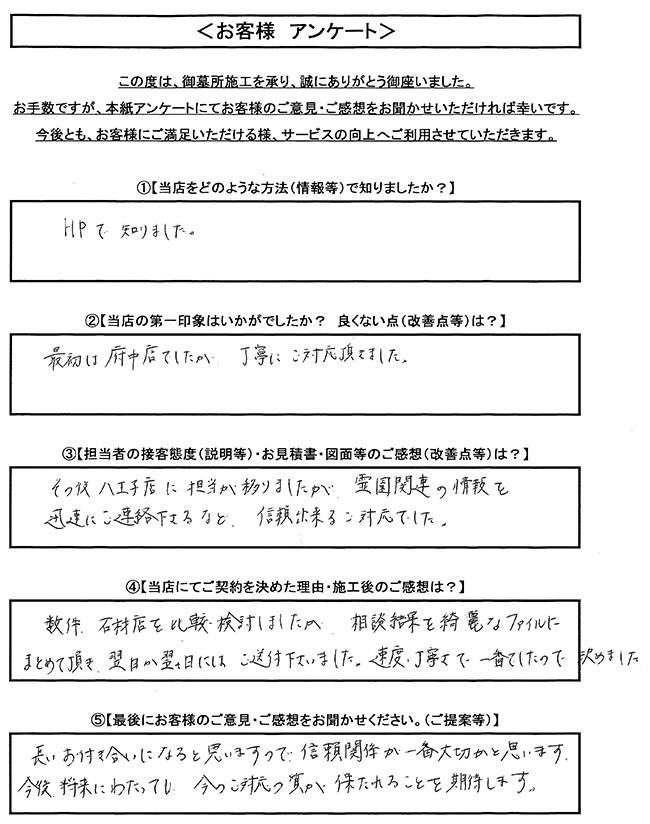 ＜お客様 アンケート＞
この度は、御墓所施工を承り、誠にありがとう御座いました。
お手数ですが、本紙アンケートにてお客様のご意見・ご感想をお聞かせいただければ幸いです。
今後とも、お客様にご満足いただける様、サービスの向上へご利用させていただきます。
①【当店をどのような方法（情報等）で知りましたか？】
HPで知りました。
②【当店の第一印象はいかがでしたか？ 良くない点（改善点等）は？】
最初は府中店でしたが 丁寧にご対応頂きました。
③【担当者の接客態度（説明等）・お見積書・図面等のご感想（改善点等）は？】
その後八王子店に担当が移りましたが、霊園関連の情報を
迅速にご連絡下さるなど、信頼出来るご対応でした。
④【当店にてご契約を決めた理由・施工後のご感想は？】
数件、石材店を比較・検討しましたが 相談結果を綺麗なファイルに
まとめて頂き、翌日か翌々日には ご送付下さいました。速度・丁寧さで一番でしたので決めました
⑤【最後にお客様のご意見・ご感想をお聞かせください。（ご提案等）】
長いお付き合いになると思いますので、信頼関係が一番大切かと思います。
今後、将来にわたっても、今のご対応の質が保たれることを期待します。